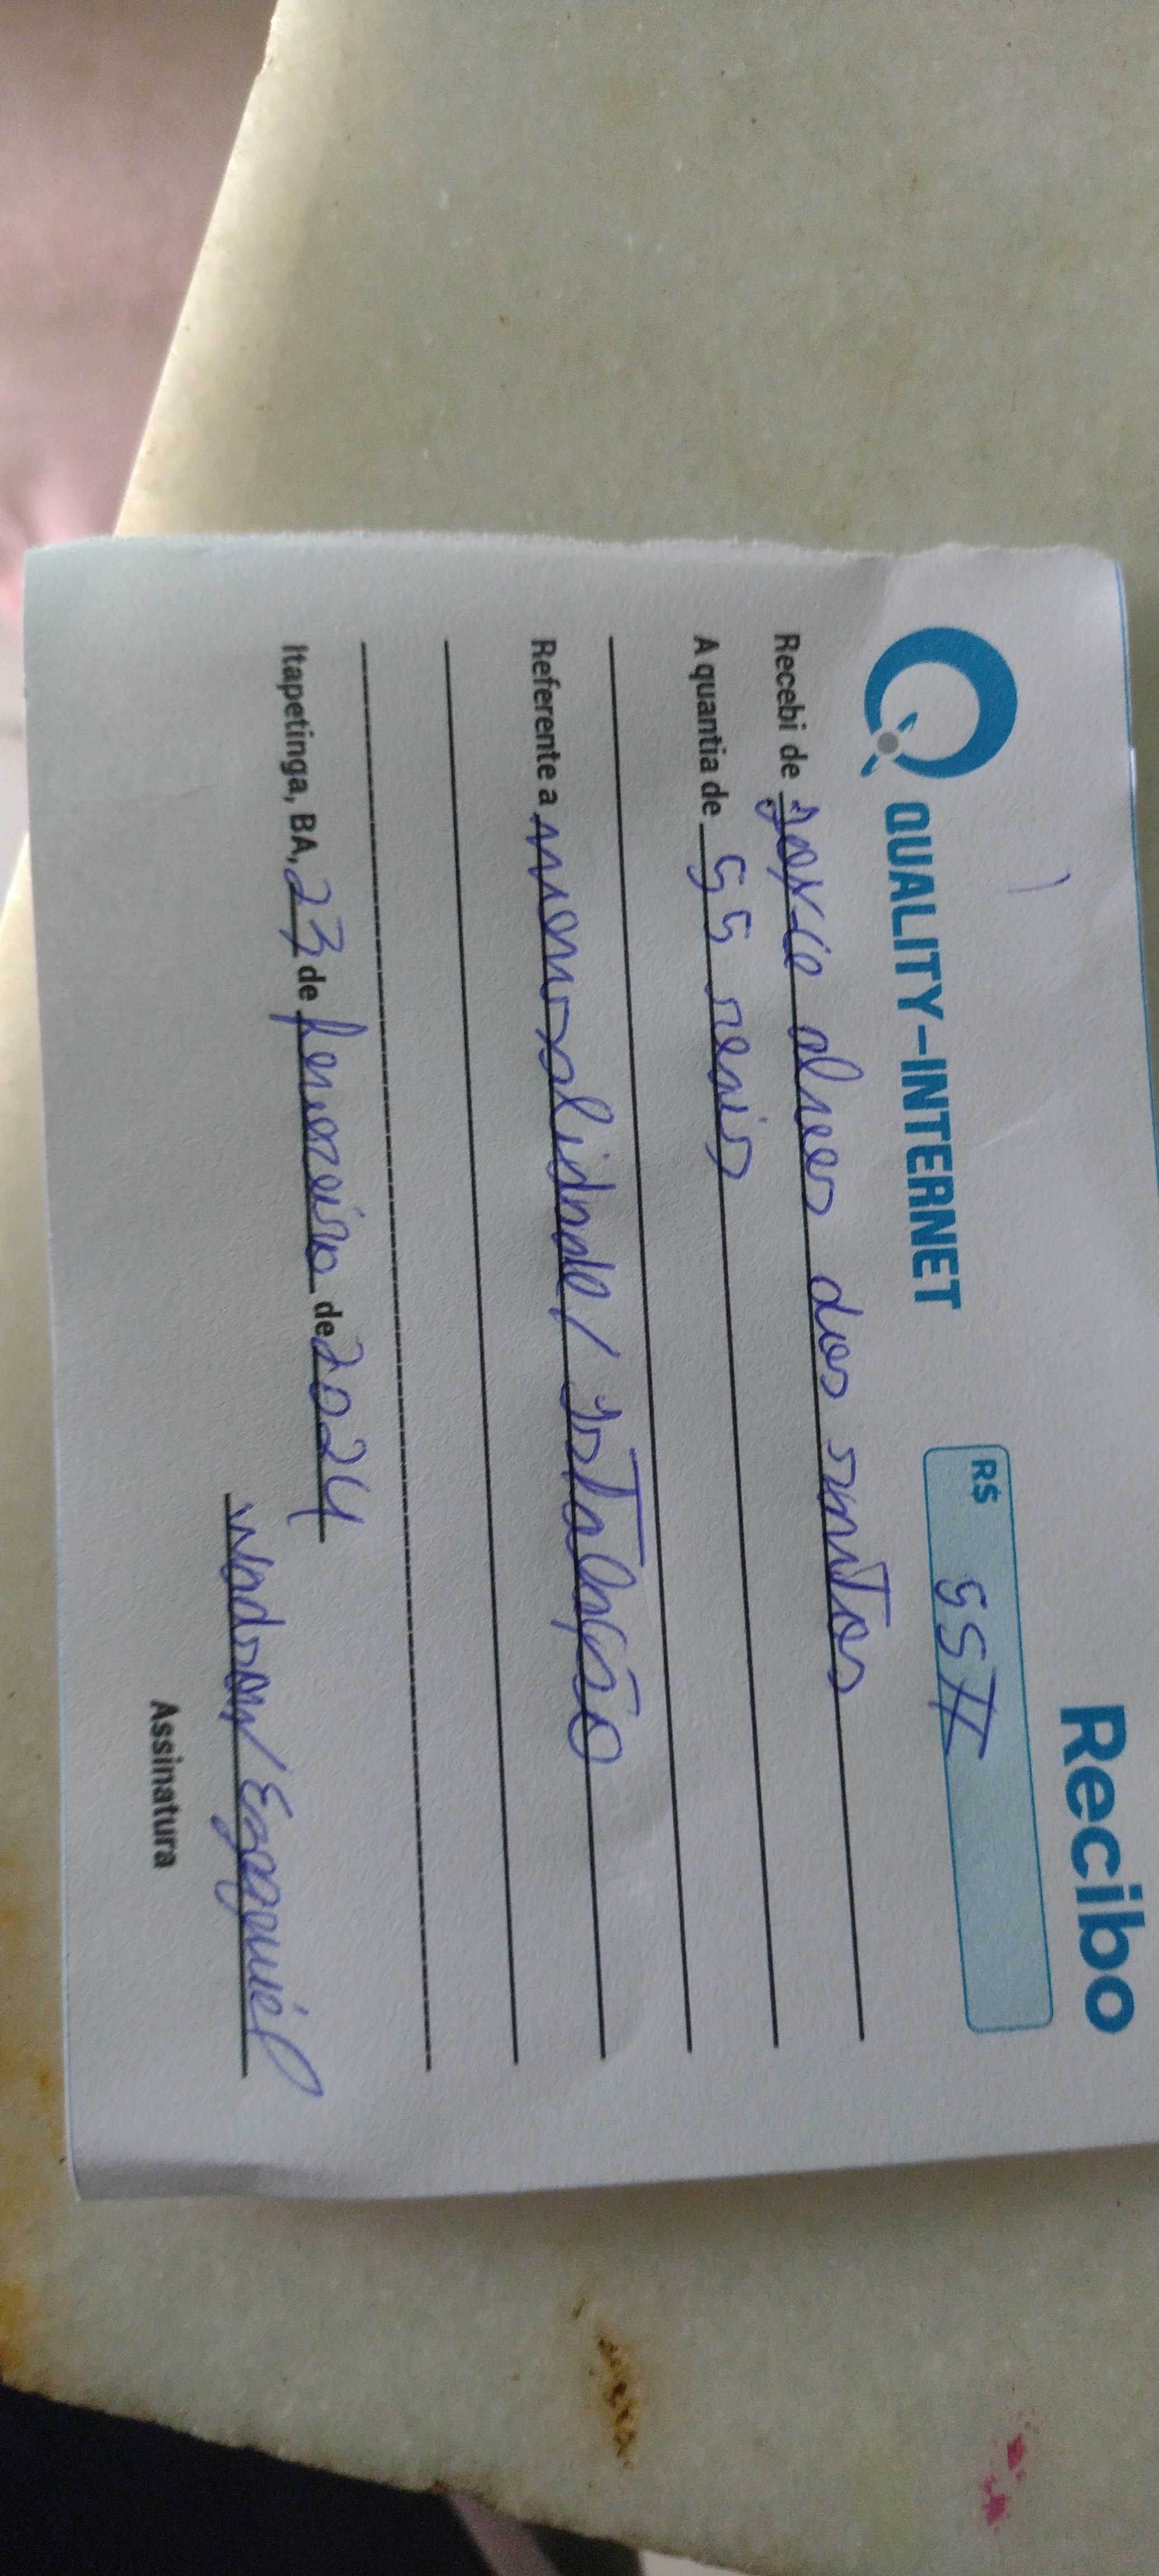 Recibo
QUALITY-INTERNET
R$ 55
Recebi de alves dos santos
A quantia de 55 reais
Referente a mensalidade / instalação
Itapetinga, BA, 23 de fevereiro de 2024
Ezequiel
Assinatura